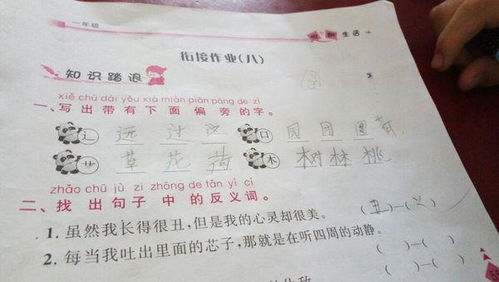 一年级 生活
衔接作业(八)
知识踏浪
xiě chū dài yǒu xià miàn piān páng de zì
一、写出带有下面偏旁的字。
辶 远 过 囗 圆 团 圆
艹 草 花 荷 木 树 林 桃
zhǎo chū jù zi zhōng de fǎn yì cí
二、找出句子中的反义词。
1. 虽然我长得很丑,但是我的心灵却很美。 (丑)—( )
2. 每当我吐出里面的芯子,那就是在听四周的动静。 ( )—( )
( )—( )